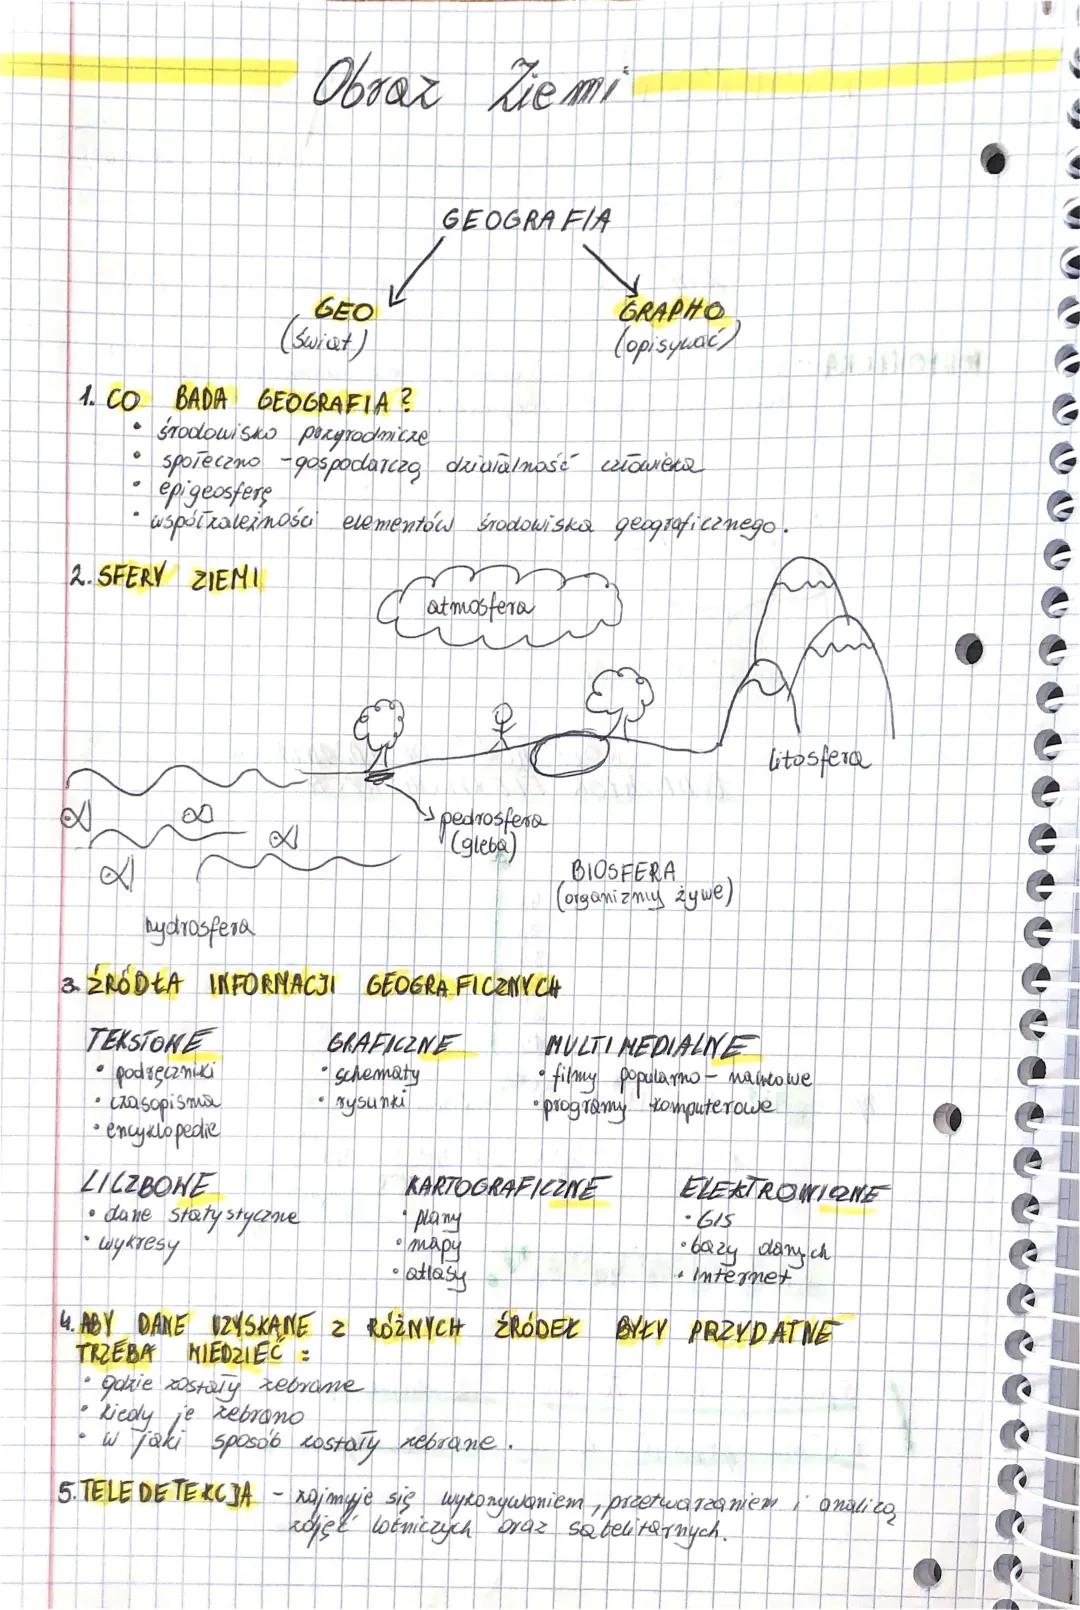 Obraz Ziemi
GEOGRAFIA
GEO
(świat)
GRAPHO
(opisywać)
1. CO BADA GEOGRAFIA?
• środowisko przyrodnicze
• społeczno-gospodarczą działalność człowieka
• epigeosferę
• współzależności elementów środowiska geograficznego.
2. SFERY ZIEMI
atmosfera
litosfera
pedrosfera
(gleba)
BIOSFERA
(organizmy żywe)
hydrosfera
3. ŹRÓDŁA INFORMACJI GEOGRAFICZNYCH
TEKSTOWE
• podręczniki
• czasopisma
• encyklopedie
GRAFICZNE
• schematy
• rysunki
MULTIMEDIALNE
• filmy popularno-naukowe
• programy komputerowe
LICZBOWE
• dane statystyczne
• wykresy
KARTOGRAFICZNE
• plany
• mapy
• atlasy
ELEKTRONICZNE
• GIS
• bazy danych
• Internet
4. ABY DANE UZYSKANE Z RÓŻNYCH ŹRÓDEŁ BYŁY PRZYDATNE
TRZEBA WIEDZIEĆ:
• gdzie zostały zebrane
• kiedy je zebrano
• w jaki sposób zostały zebrane.
5. TELEDETEKCJA - zajmuje się wykonywaniem, przetwarzaniem i analizą
zdjęć lotniczych oraz satelitarnych.